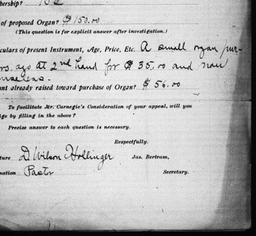 bership?
of proposed Organ? $150.00
(This question is for explicit answer after investigation.)
culars of present Instrument, Age, Price, Etc. A small organ pur-
rs. ago at 2nd hand for $35.00 and now
nt already raised toward purchase of Organ? $56.00
To facilitate Mr. Carnegie's Consideration of your appeal, will you
ige by filling in the above?
Precise answer to each question is necessary.
Respectfully,
ture D Wilson Hollinger Jas. Bertram,
nation Pastor Secretary.